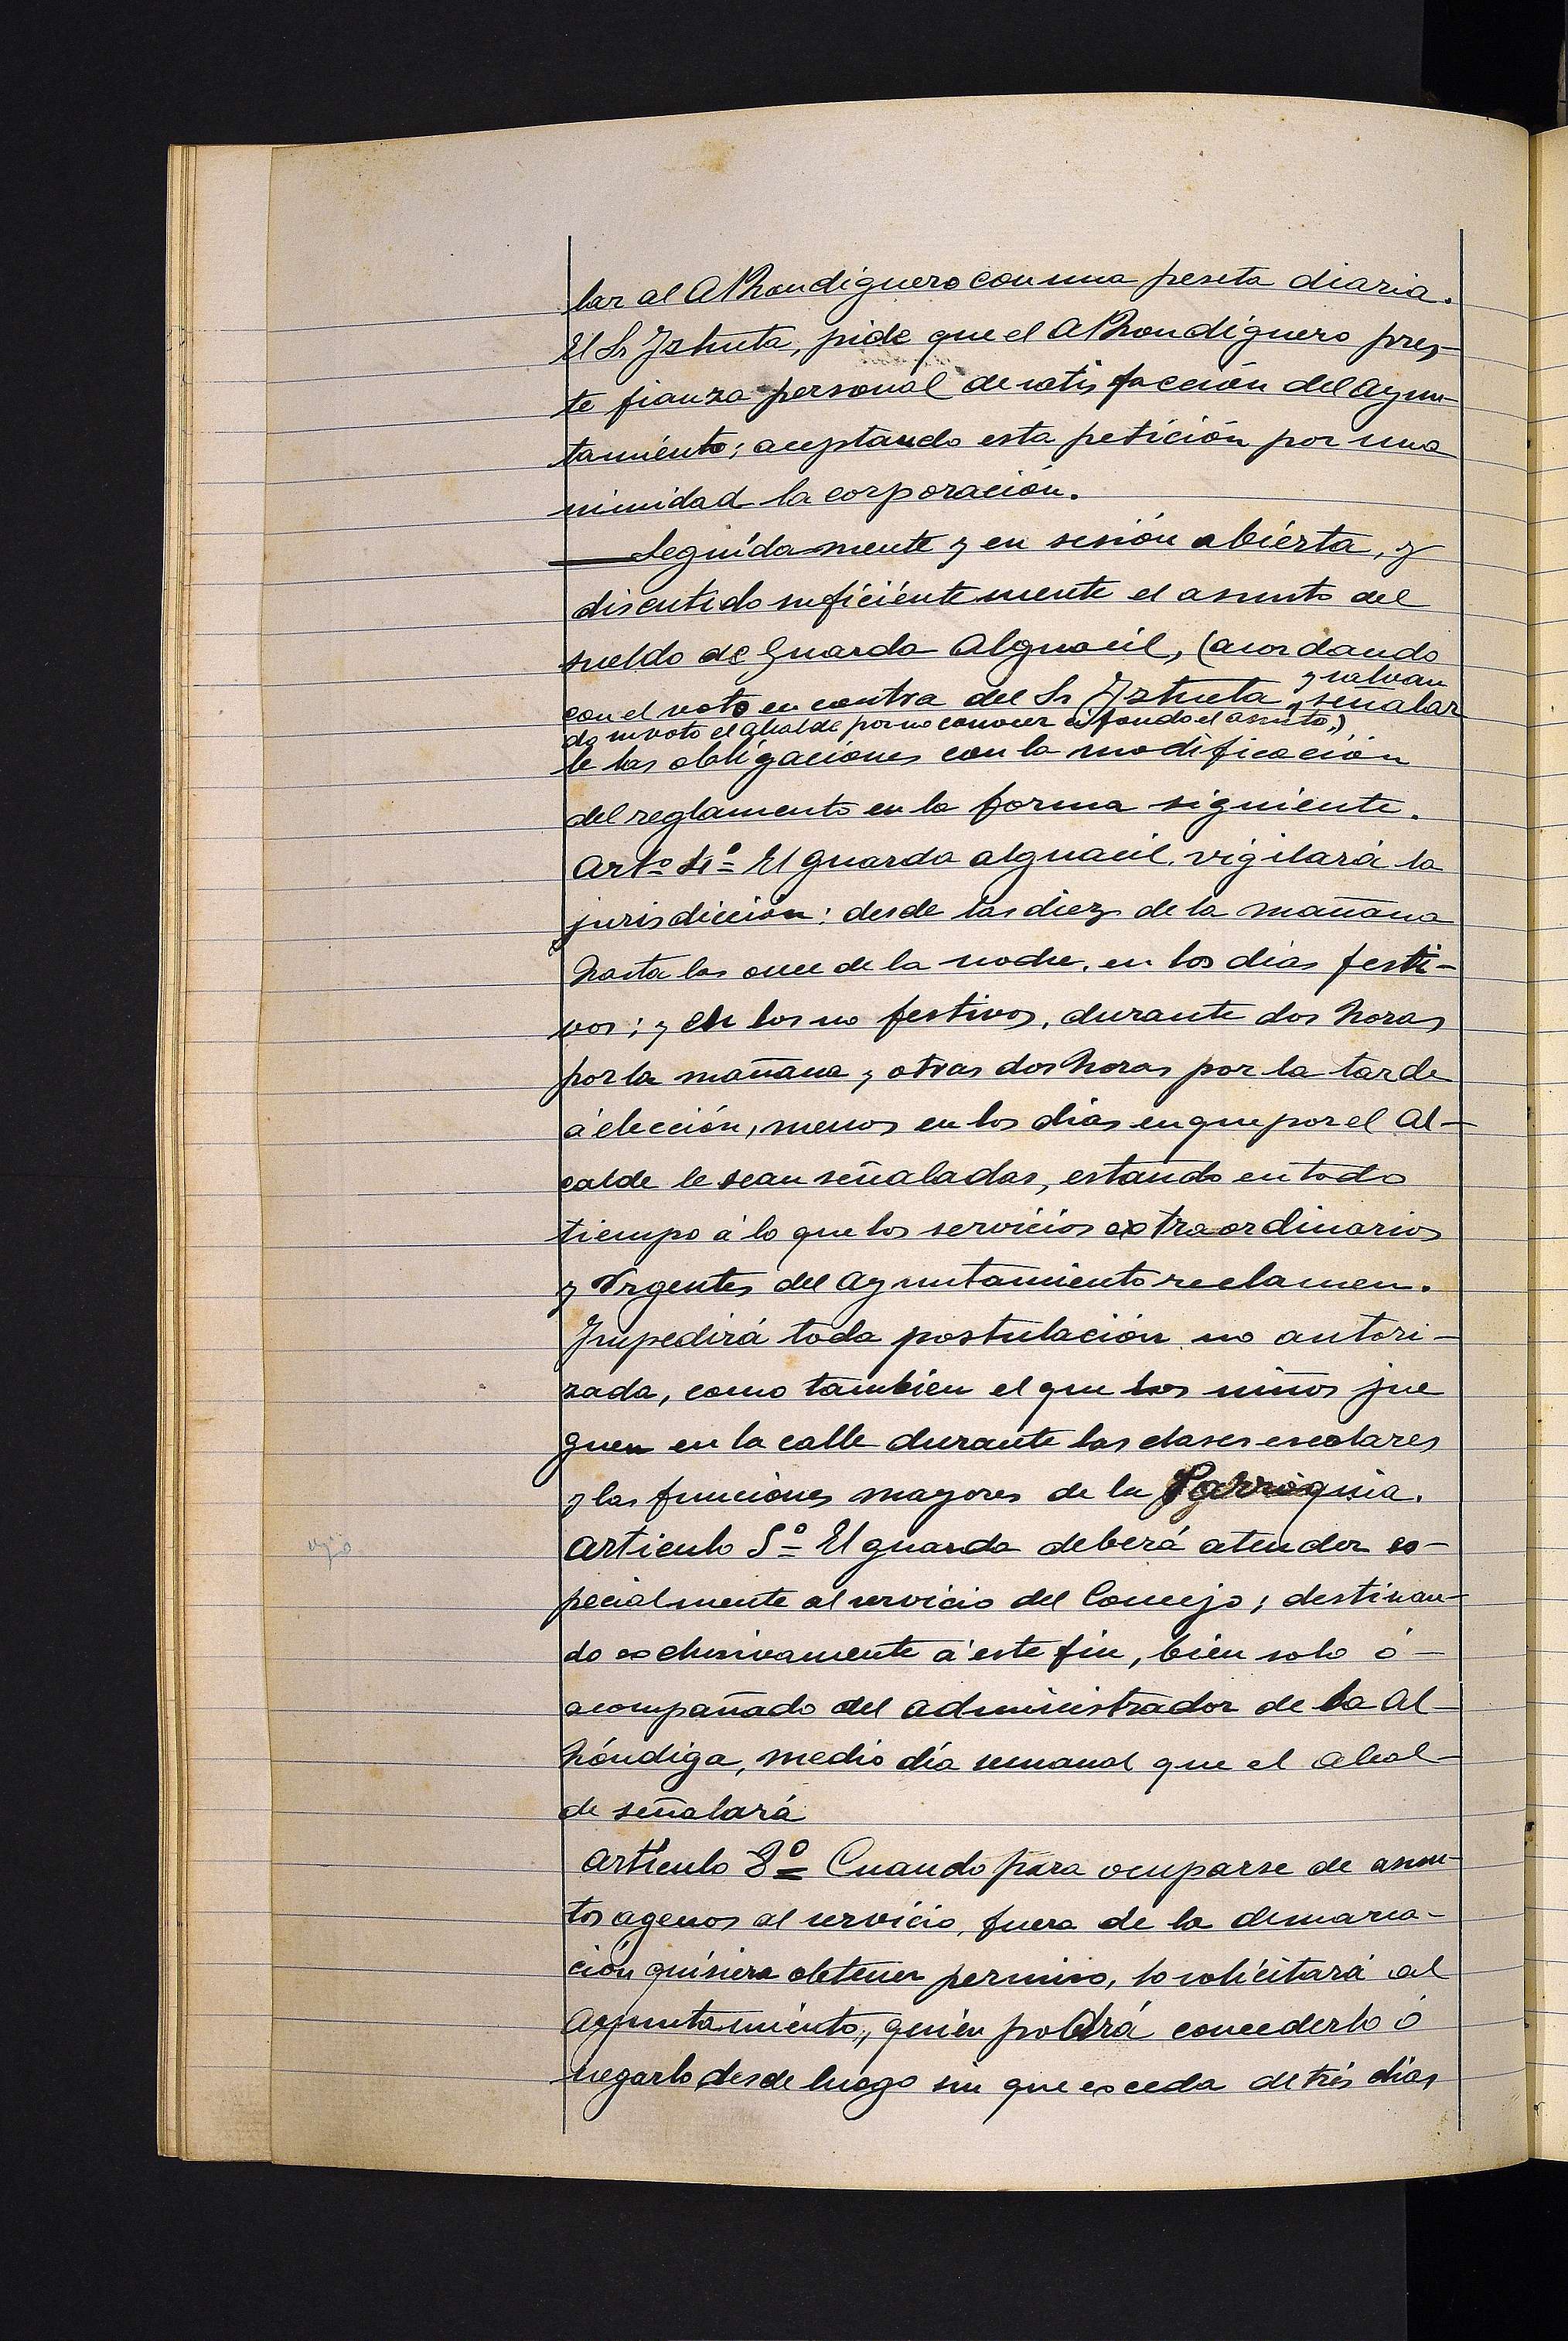 lar al Alhondiguero con una peseta diaria.
El Sr Iztueta, pide que el Alhondiguero pres-
te fianza personal de satisfacción del Ayun-
tamiento; aceptando esta petición por una
nimidad la corporación.
Seguidamente y en sesión abierta, y
discutido suficientemente el asunto del
sueldo de Guarda Alguacil, (acordando
con el voto en contra del Sr Iztueta y salvan
do su voto el Alcalde por no conocer a fondo el asunto,) señalar
le las obligaciones con la modificación
del reglamento en la forma siguiente.
Artº 4º El guarda alguacil, vigilará la
jurisdicción; desde las diez de la mañana
hasta las once de la noche, en los dias festi-
vos; y en los no festivos, durante dos horas
por la mañana y otras dos horas por la tarde
á elección, menos en los dias en que por el Al-
calde le sean señaladas, estando en todo
tiempo á lo que los servicios extraordinarios
y Urgentes del Ayuntamiento reclamen.
Impedirá toda postulación no autori-
zada, como tambien el que los niños jue
guen en la calle durante las clases escolares
y las funciones mayores de la Parroquia.
Articulo 5º El guarda deberá atender es-
pecialmente al servicio del Concejo; destinan-
do exclusivamente á este fin, bien solo ó
acompañado del administrador de la Al-
hóndiga, medio día semanal que el Alcal-
de señalará
Artículo 8º Cuando para ocuparse de asun-
tos agenos al servicio, fuera de la demarca-
ción quisiera obtener permiso, lo solicitará al
Ayuntamiento, quién podrá concederlo ó
negarlo desde luego sin que exceda de trés dias